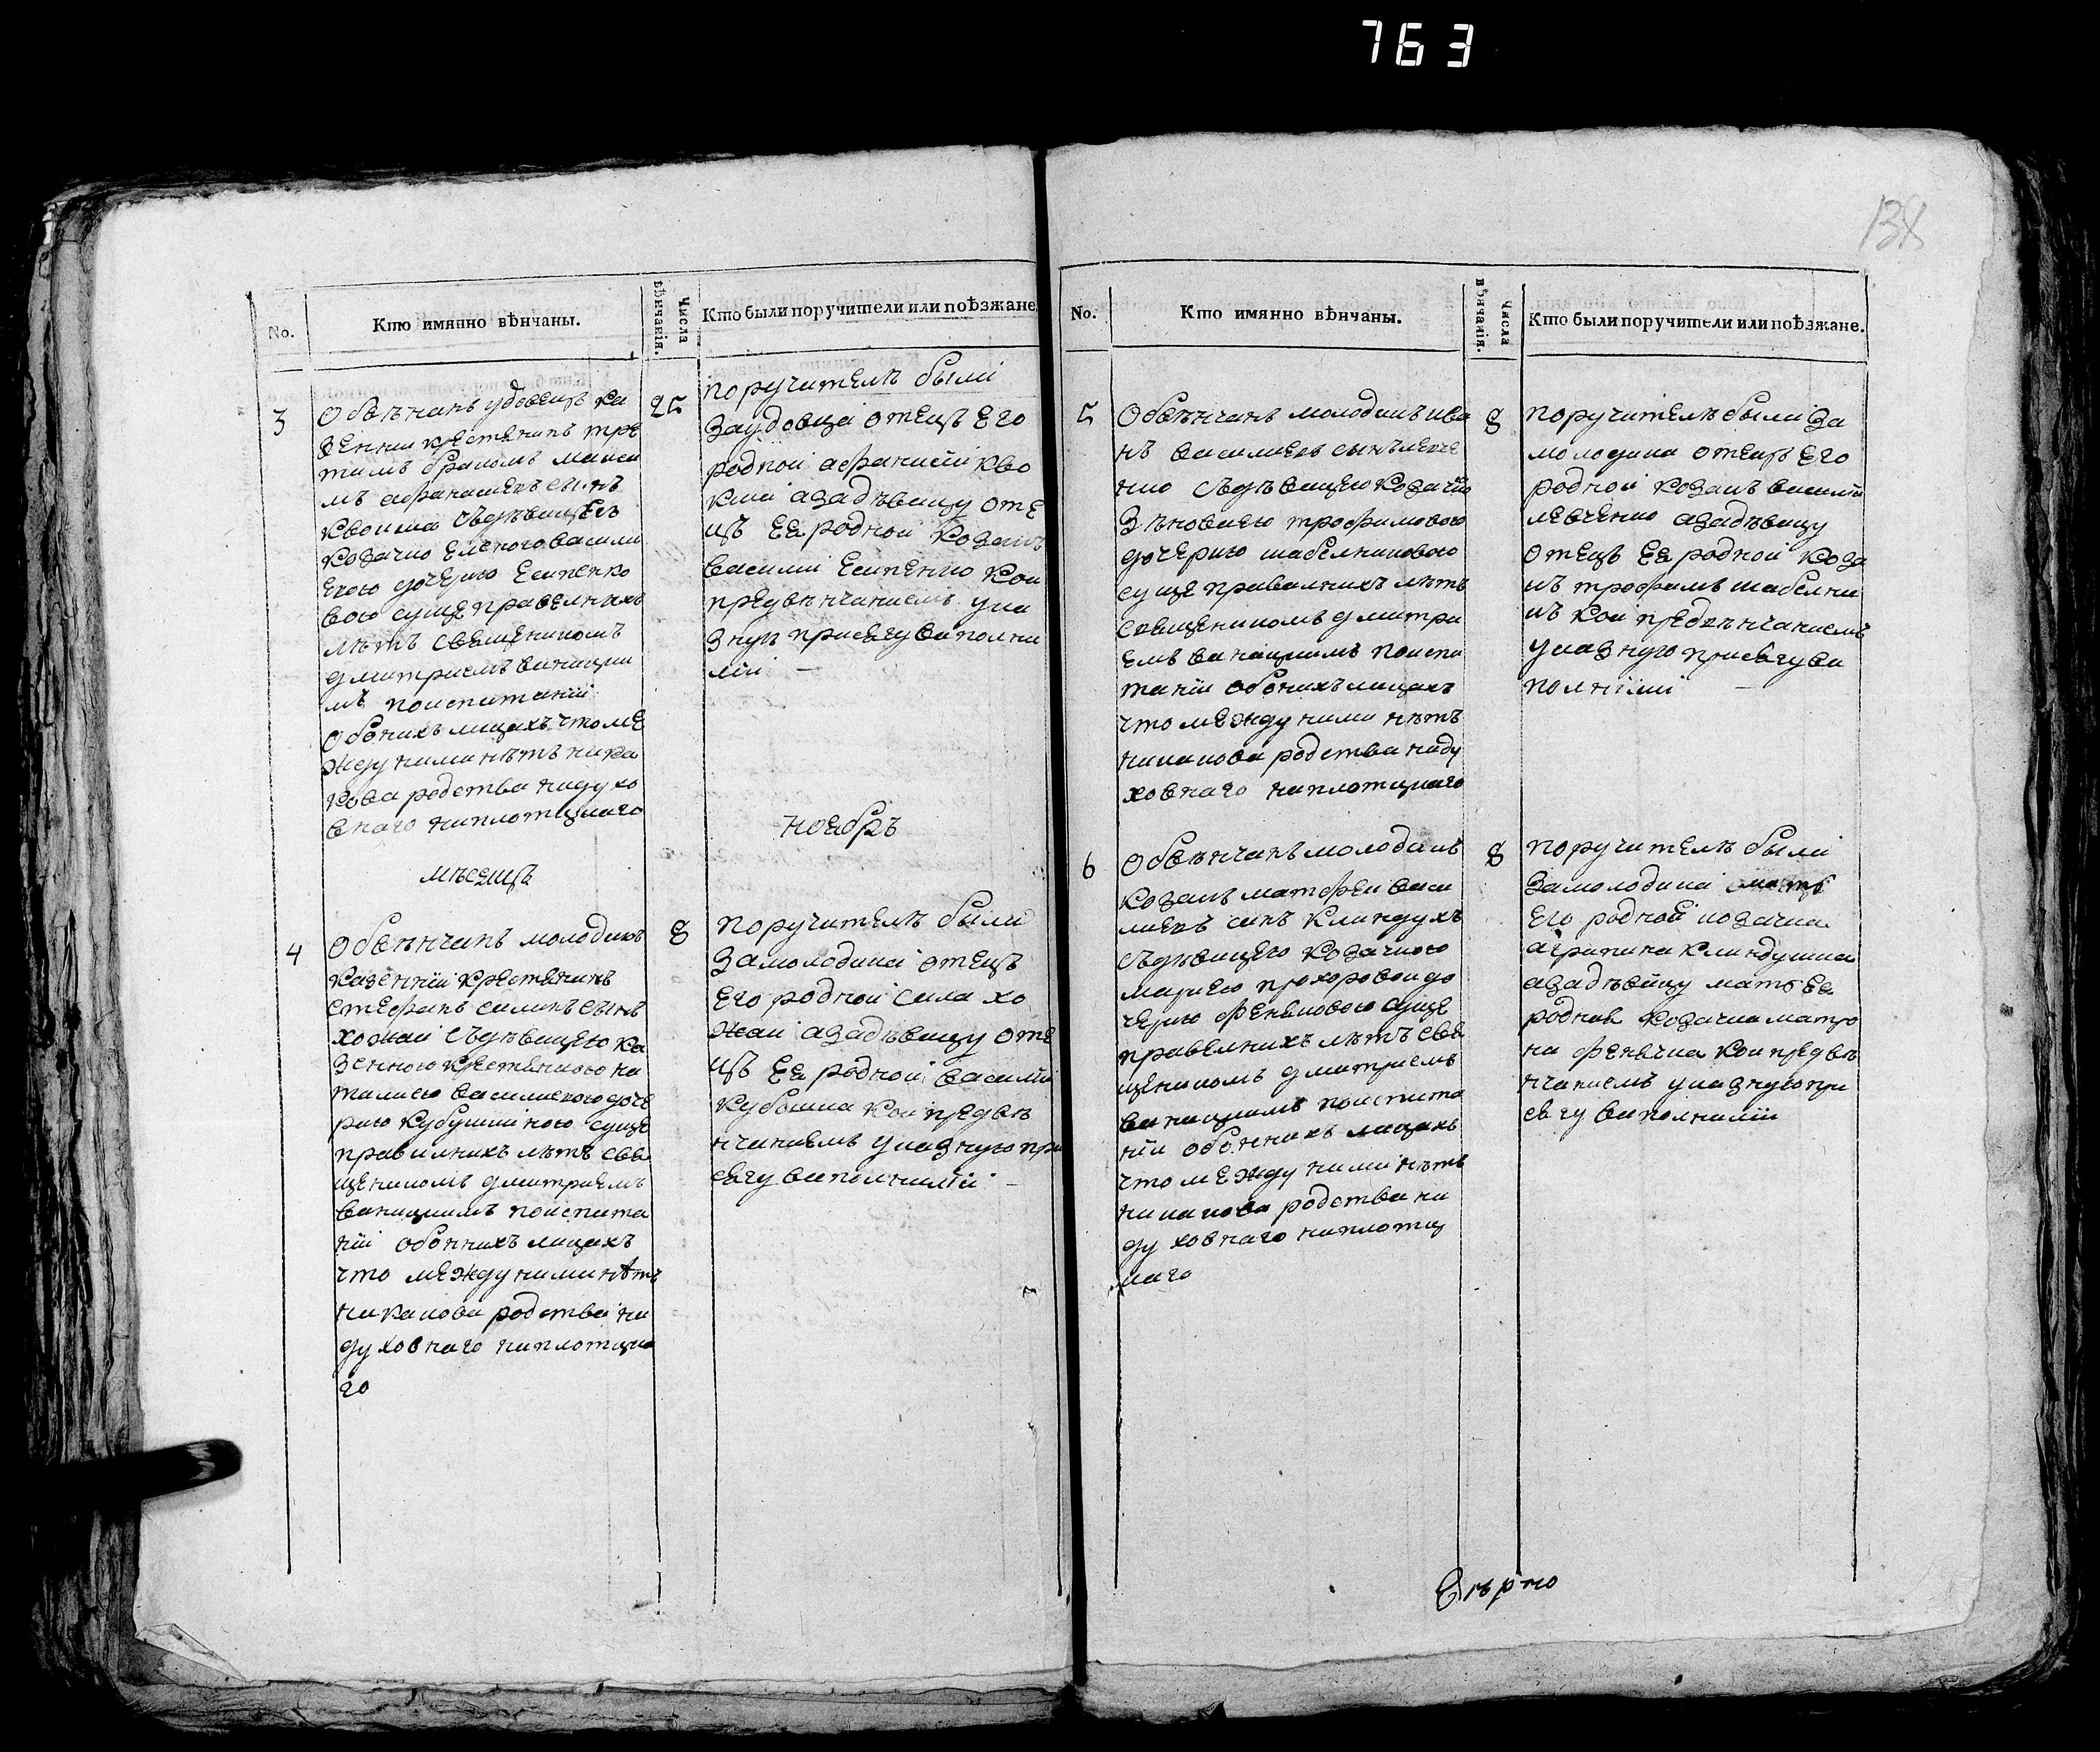 763
138
No.
Кто имянно вѣнчаны.
Числа вѣнчанія.
Кто были поручители или поѣзжане.
3
Обвѣнчанъ удовецъ ка
зенни крестенинъ тре
тимъ бракомъ макси
мъ афанасиевъ сынъ
Квокша съдѣвицею
козачко Еленого васили
евою дочерию Есипенко
вою суще правелнихъ
лѣтъ свещеникомъ
дмитриемъ
мъ поиспитаніи
обоихъ лицахъ что ме
жду ними нѣтъ ника
кова родства ниду хо
внаго ниплотцкаго
25
поручителѣ были
заудовца отецъ Его
родной афанисіи Кво
кша азадѣвицу оте
цъ Ея родной козакъ
василіи Есипенко кои
предвѣнчаниемъ ука
зную присягу виполни
ліи —
мѣсецъ
ноебръ
4
Обвѣнчанъ молодикъ
казенніи крестенинъ
стефанъ силинъ сынъ
хожаи съдѣвицею ка
зенною крестянкою на
талиею василиевою доче
рию кубушкіною суще
правилнихъ лѣтъ све
щеникомъ дмитриемъ
поиспита
ніи обоннихъ лицахъ
что между ними нѣтъ
никакова родства ни
ду ховнаго ниплотцка
го
8
поручителѣ были
замолодика отецъ
Его родной сила хо
жаи азадѣвицу оте
цъ Ея родной василіи
кубошка кои предвѣ
нчаниемъ указную при
сягу виполниліи —
No.
Кто имянно вѣнчаны.
Числа вѣнчанія.
Кто были поручители или поѣзжане.
5
Обвѣнчанъ молодикъ ива
нъ василиевъ сынъ левче
нко съдѣвицею козачко
Зѣновиею трофимовою
дочерию шабелниковою
суще правелнихъ лѣтъ
свещеникомъ дмитри
емъ поиспи
таніи обоннихъ лицахъ
что между ними нѣтъ
никакова родства ниду
ховнаго ниплотцкаго
8
поручителѣ были за
молодика отецъ Его
родной козакъ василіи
левченко азадѣвицу
отецъ Ея родной коза
къ трофимъ шабелни
къ кои предвѣнчаниемъ
указную присягу ви
полніліи —
6
Обвѣнчанъ молодикъ
козакъ матфеи васи
лиевъ синъ Клиндухъ
съдѣвицею козачкою
мариею прохоровои до
черию фенковою суще
правелнихъ лѣтъ све
щеникомъ дмитриемъ
поиспита
ніи обоннихъ лицахъ
что между ними нѣтъ
никакова родства ни
ду ховнаго ниплотц
каго
8
поручителѣ были
замолодика мать
Его родной козачка
агрипина клиндушка
азадѣвицу мать Ея
родная козачка матро
на фенечка кои предвѣ
нчаниемъ указную при
сягу виполниліи
Вѣрно